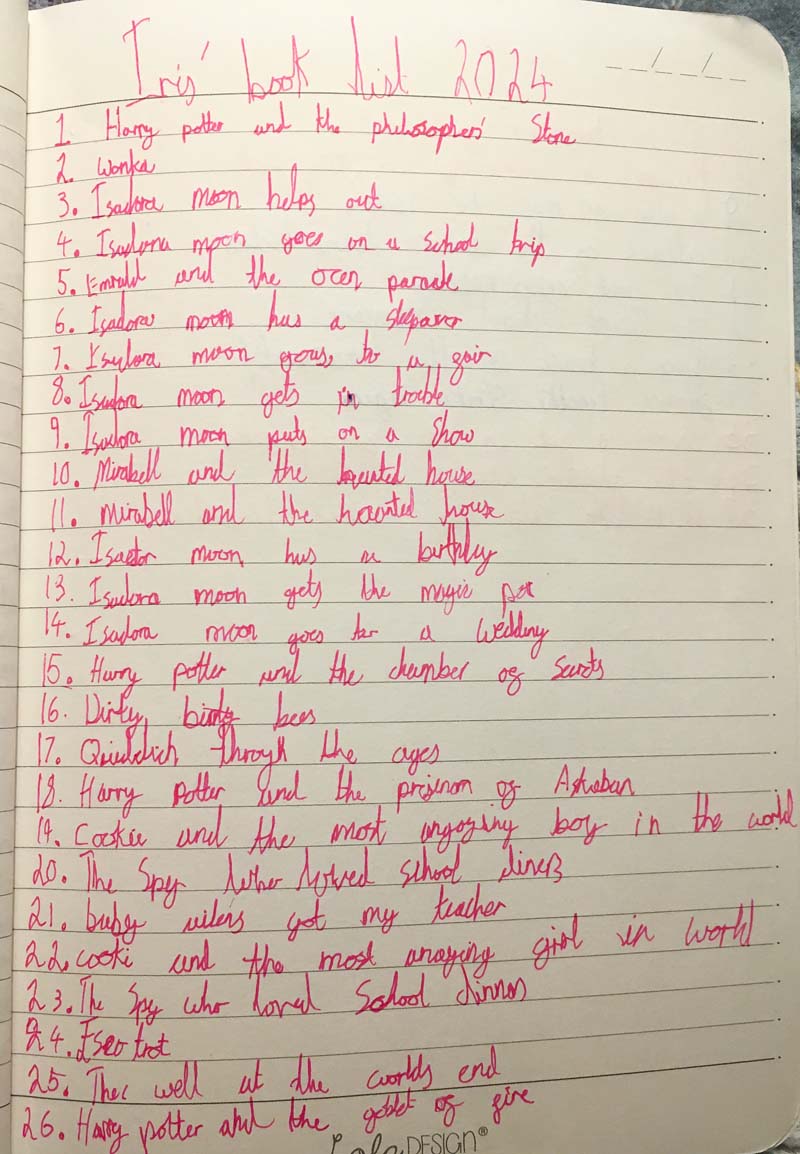 Iris' book list 2024
_ _ / _ _ / _ _
1. Harry potter and the philosophers' Stone
2. Wonka
3. Isadora moon helps out
4. Isadora moon goes on a school trip
5. Emrald and the ocen parade
6. Isadora moon has a sleepover
7. Isadora moon goes to a gair
8. Isadora moon gets in trouble
9. Isadora moon puts on a Show
10. Mirabell and the haunted house
11. Mirabell and the haonted house
12. moon has a birthday
13. Isadora moon gets the magic
14. Isadora moon goes to a Wedding
15. Harry potter and the chamber og
16. Dirty, bees
17. the ages
18. Harry potter and the og
19. Cookie and the most boy in the world
20. The Spy school
21. got my teacher
22. cooki and the most girl in world
23. The Spy who loved School
24. trot
25. well at the worlds end
26. Harry potter and the goblet og gire
DESIGN®